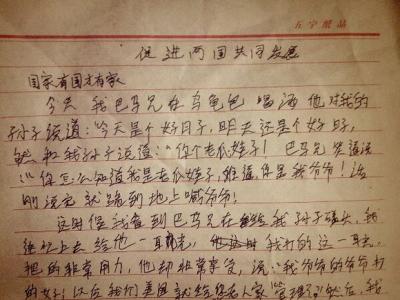 五宁醴品
促进两国共同发展
国家有国才有家
今天 我巴马兄在乌龟包 喝酒 他对我的
孙子说道:“今天是个好日子,明天还是个好日子,
然和我孙子说道:“你个老瓜娃子! 巴马兄笑语说
“你怎么知道我是老瓜娃子,难道,你是我爷爷!话
刚说完就跪到地上喊爷爷!
这时侯我看到巴马兄在给我孙子磕头,我
连忙上去给他一耳光,我打的这一耳光
把的非常用力,他却非常享受,说:“我爷爷的爷爷打
的太好!以后我们美国就给您老人家管理了!然后,我